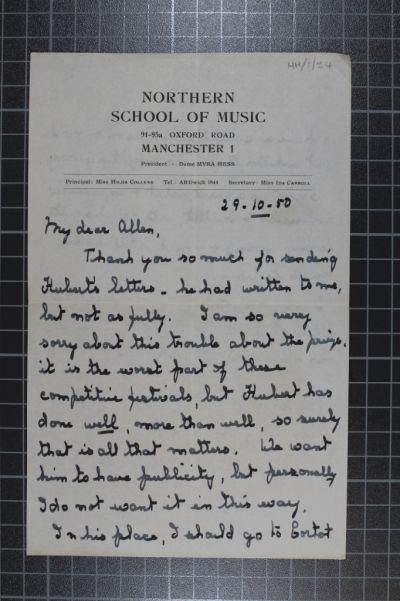 HH/1/24
NORTHERN
SCHOOL OF MUSIC
91-95a OXFORD ROAD
MANCHESTER 1
President - Dame MYRA HESS
Principal: Miss HILDA COLLENS Tel.: ARDwick 1844 Secretary: Miss IDA CARROLL
29-10-50
My dear Allen,
Thank you so much for sending
Hubert's letters - he had written to me,
but not as fully. I am so very
sorry about this trouble about the prize.
it is the worst part of these
competitive festivals, but Hubert has
done well, more than well, so surely
that is all that matters. We want
him to have publicity, but personally
I do not want it in this way.
In his place, I should go to Cortot